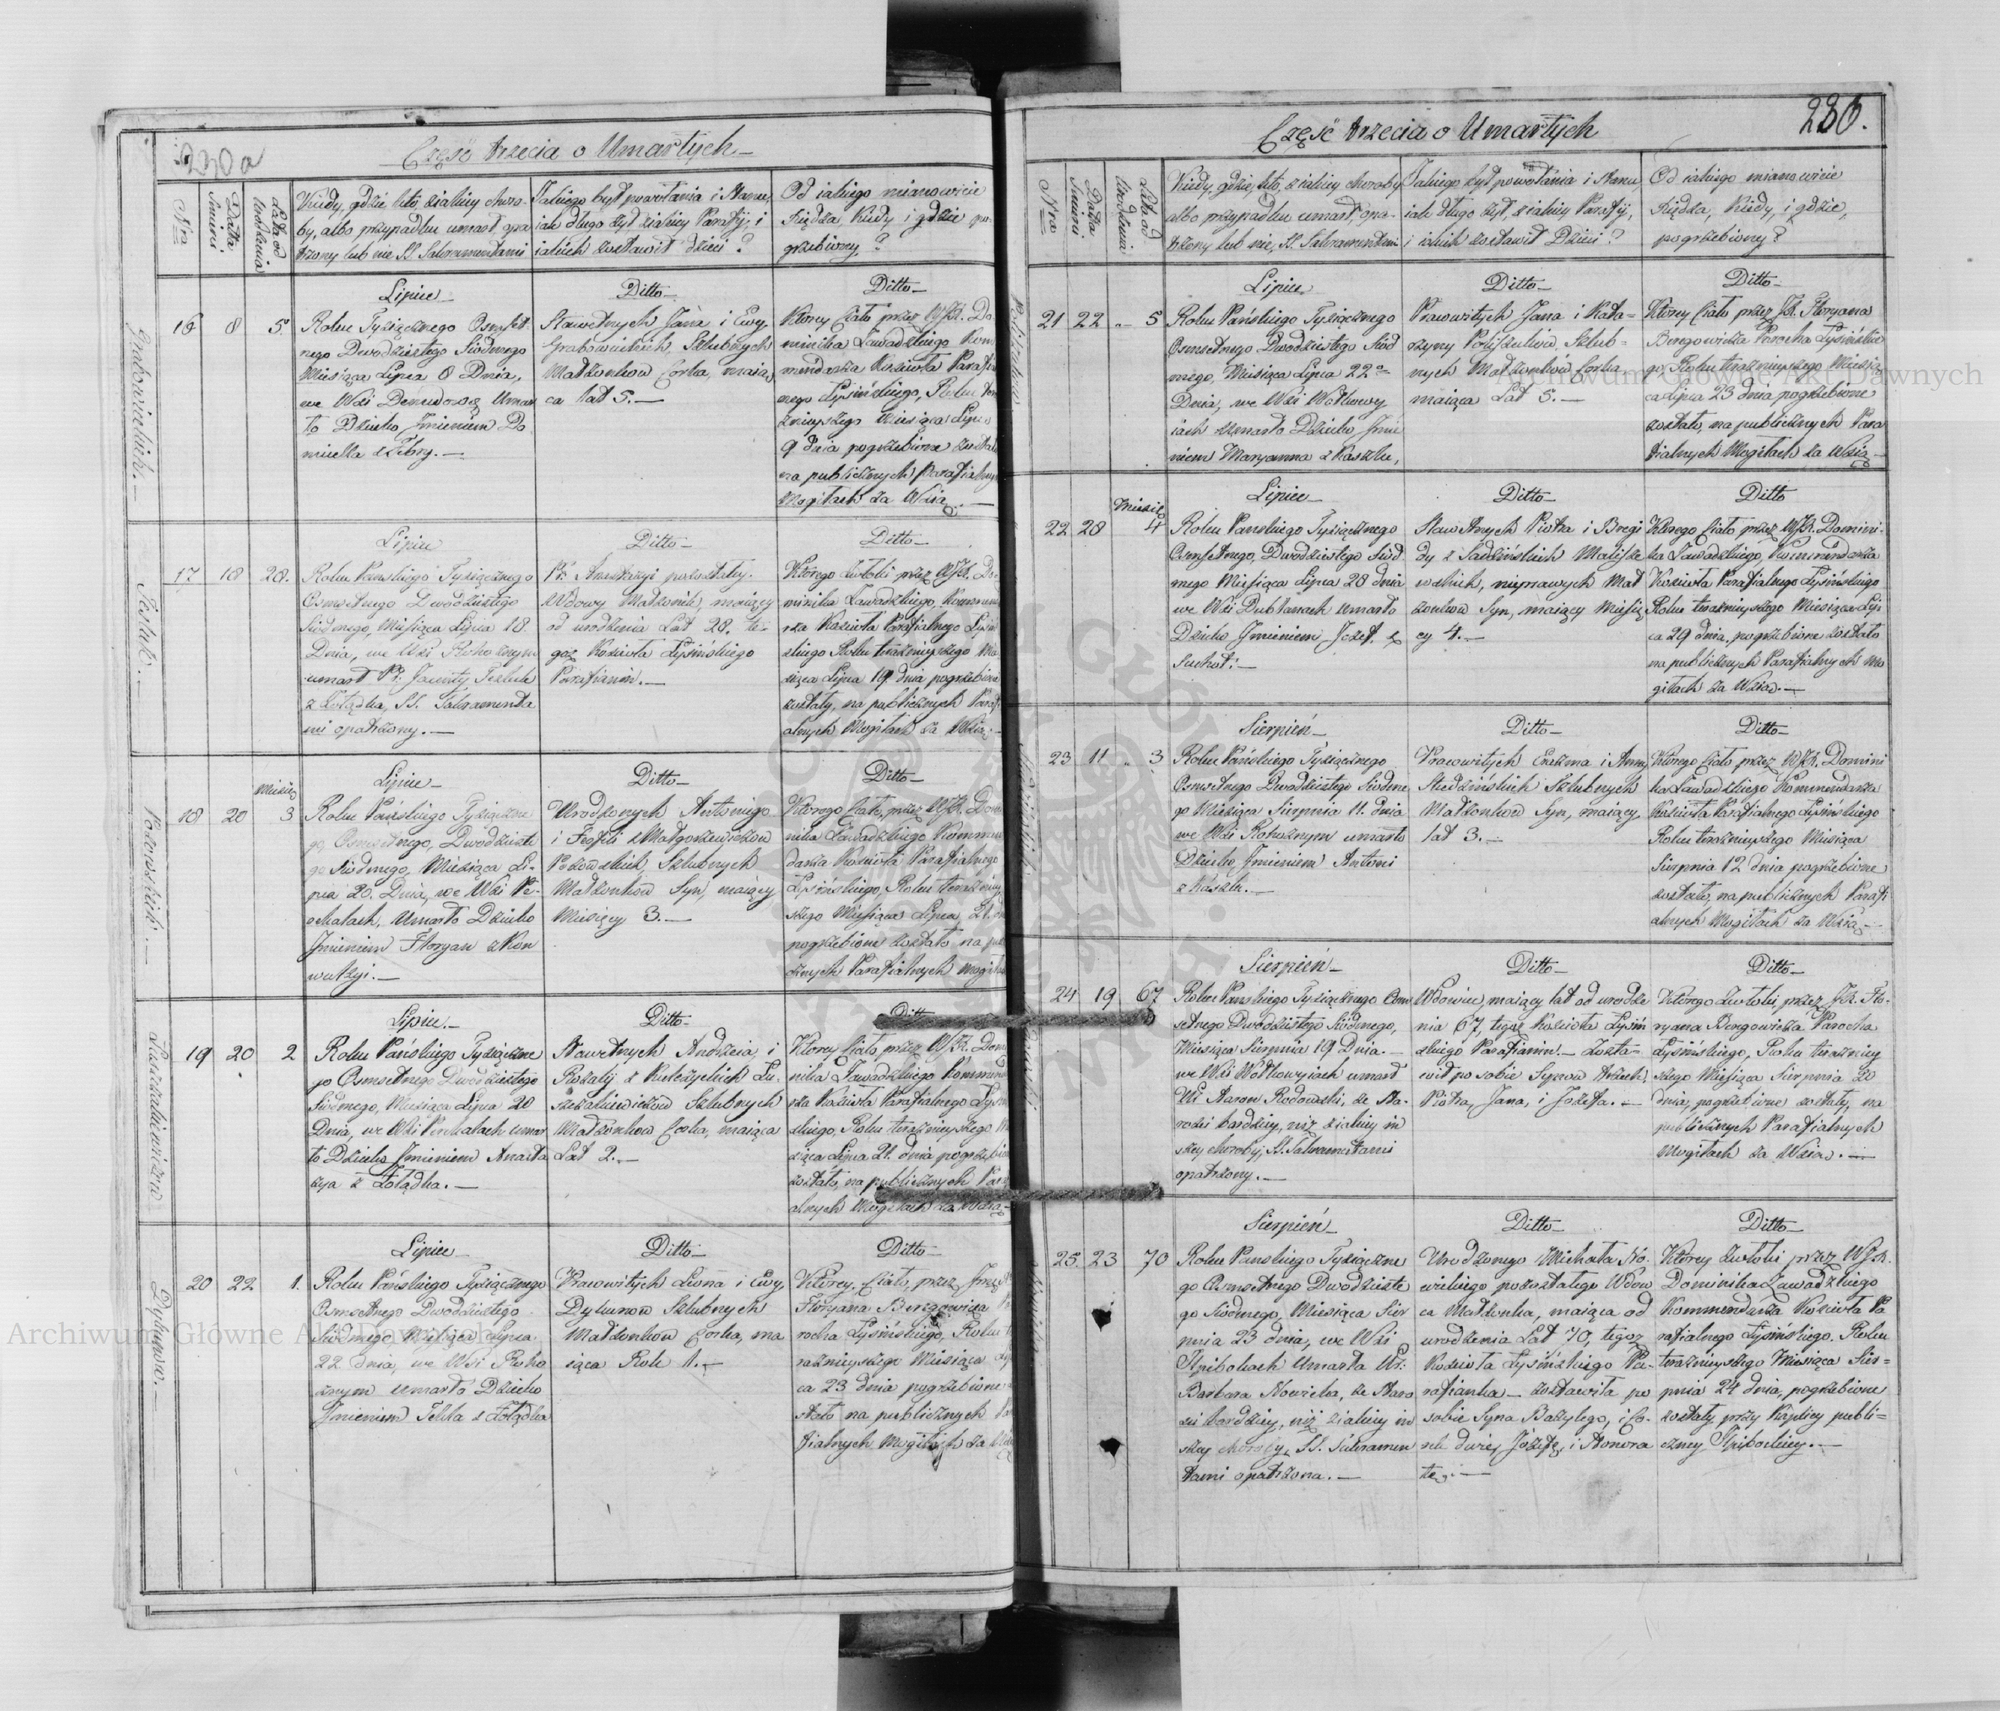 230a
Część trzecia o Umarłych
Nro
Data Śmierci
Lata od urodzenia
Kiedy, gdzie, kto, z iakiey choro-
by, albo przypadku umarł, opa
trzony lub nie SS. Sakramentami
Jakiego był powołania i Stanu,
iak długo żył z iakiey Parafij, i
iakich zostawił dzieci?
Od iakiego mianowicie
Xiędza, Kiedy i gdzie po
grzebiony?
16 8 5
Lipiec
Roku Tysiącznego Osmset-
nego Dwudziestego Siódmego
Miesiąca Lipca 8 Dnia,
we Wsi Umar
ło Dziecko Jmieniem Do
micella z Febry.
Ditto
Sławetnych Jana i Ewy
Grabowieckich, Szlubnych
Małżonkow Corka, maią
ca lat 5.
Ditto
Ktorey Ciało przez WJX. Do
minika Zawadzkiego Kom
mendarza Kościoła Parafial
nego Łysińskiego, Roku ter
raznieyszego Miesiąca Lipca
9 dnia pogrzebione zostało
na publicznych Parafialnych
Mogiłach za Wsią.
17 18 28.
Lipiec
Roku Panskiego Tysiącznego
Osmsetnego Dwudziestego
Siódmego, Miesiąca Lipca 18
Dnia, we Wsi Rohoznym
umarł Jacenty
z Żołądka, SS. Sakramenta
mi opatrzony.
Ditto
Anastazyi pozostałey
Wdowy Małżonek, maiący
od urodzenia Lat 28. te-
goż Kościoła Łysińskiego
Parafianin.
Ditto
Którego Zwłoki przez WJX. Do-
minika Zawadzkiego, Kommen
rza Kościoła Parafialnego Łysiń
skiego Roku teraznieyszego Mie
siąca Lipca 19 dnia pogrzebione
zostały, na publicznych Parafi
alnych Mogiłach za Wsią.
18 20 Miesięc 3
Lipiec
Roku Pańskiego Tysiączne
go Osmsetnego, Dwudzieste
go Siódmego, Miesiąca Li-
pca 20. Dnia, we Wsi Pe-
czkałach, Umarło Dziecko
Jmieniem Floryan z Kon
wulzyi.
Ditto
Urodzonych Antoniego
i Teofili z Małgorzewiczow
Szlubnych
Małżonkow Syn, maiący
Miesięcy 3.
Ditto
Którego Ciało, przez WJX. Domi
nika Zawadzkiego Kommen
darza Kościoła Parafialnego
Łysińskiego, Roku teraźniey
szego Miesiąca Lipca 21.
pogrzebione zostało na pub
cznych Parafialnych Mogiła
19 20 2
Lipiec.
Roku Pańskiego Tysiączne
go Osmsetnego Dwudziestego
Siódmego, Miesiąca Lipca 20
Dnia, we Wsi umar
ło Dziecko Jmieniem Anasta
zya z Żołądka.
Ditto
Sławetnych Andrzeia i
Rozalij z Kuleszyckich Łu-
szkaliewiczow Szlubnych
Małżonkow Corka, maiąca
Lat 2.
Ditto
Ktorey Ciało, przez WJX. Domi
nika Zawadzkiego Kommend
rza Kościoła Parafialnego Łysiń
skiego, Roku teraznieyszego Mi
siąca Lipca 21. dnia pogrzebion
zostało, na publicznych Para
alnych Mogiłach za Wsią
20 22 1.
Lipiec
Roku Pańskiego Tysiącznego
Osmsetnego Dwudziestego
Siódmego, Miesiąca Lipca
22 dnia, we Wsi Roho
znym umarło Dziecko
Jmieniem Tekla z Żołądka
Ditto
Pracowitych i Ewy
Dykunow Szlubnych
Małżonkow Corka, ma
iąca Rok 1.
Ditto
Ktorey, Ciało, przez
Floryana Bengowicza
rocha Łysińskiego, Roku te
raznieyszego Miesiąca Lip
ca 23 dnia pogrzebione
stało na publicznych
fialnych Mogiłach za
236.
Część trzecia o Umarłych
Nro
Data Śmierci
Lata od Urodzenia
Kiedy, gdzie, kto, z iakiey choroby
albo przypadku umarł, opa-
trzony lub nie, SS. Sakramentami
Jakiego był powołania i Stanu
iak długo żył, z iakiey Parafij,
i iakich zostawił Dzieci?
Od iakiego mianowicie
Xiędza, Kiedy, i gdzie,
pogrzebiony?
21 22 5
Lipiec
Roku Pańskiego Tysiącznego
Osmsetnego Dwudziestego Siód
mego, Miesiąca Lipca 22o
Dnia, we Wsi Wołkowy
iach zmarło Dziecko Jmie
niem Maryanna z Kaszlu,
Ditto
Pracowitych Jana i Kata-
rzyny Szlub-
nych Małżonków Corka
maiąca Lat 5.
Ditto
Ktorey Ciało przez JX. Floryana
Bengowicza Parocha Łysińskie
go, Roku teraznieyszego Miesią
ca Lipca 23 dnia pogrzebione
zostało, na publicznych Para
fialnych Mogiłach za Wsią
22 28 Miesięc 4
Lipiec
Roku Panskiego Tysiącznego
Osmsetnego, Dwudziestego Siód
mego Miesiąca Lipca 28 dnia
we Wsi Dubłanach umarło
Dziecko Jmieniem Jozef z
Suchot.
Ditto
Sławetnych Piotra i Brygi
dy z Sadzińskich
nieprawych Mał
żonkow Syn, maiący Miesię
cy 4.
Ditto
Ktorego Ciało przez WJX. Domini
ka Zawadzkiego, Kommendarza
Kościoła Parafialnego Łysińskiego
Roku teraznieyszego Miesiąca Lip
ca 29 dnia, pogrzebione zostało
na publicznych Parafialnych Mo
giłach za Wsią.
23 11 3
Sierpień
Roku Pańskiego Tysiącznego
Osmsetnego Dwudziestego Siódme
go Miesiąca Sierpnia 11. Dnia
we Wsi Rohoznym umarło
Dziecko Jmieniem Antoni
z Kaszlu.
Ditto
Pracowitych Erazma i Anny
Szlubnych
Małżonkow Syn, maiący
lat 3.
Ditto
Którego Ciało przez WJX. Domini
ka Zawadzkiego Kommendarza
Kościoła Parafialnego Łysińskiego
Roku teraznieyszego Miesiąca
Sierpnia 12 dnia pogrzebione
zostało, na publicznych Parafi
alnych Mogiłach za Wsią
24 19 67
Sierpień
Roku Panskiego Tysiącznego Osm
setnego Dwudziestego Siódmego,
Miesiąca Sierpnia 19 Dnia.
we Wsi Wołkowyiach umarł
Ur. Aaron Rodowski, ze Sta-
rości bardziey, niż z iakiey in
szey choroby, SS. Sakramentami
opatrzony.
Ditto
Wdowiec, maiący lat od urodze
nia 67, tegoż Kościoła Łysiń
skiego Parafianin. Zosta-
wił po sobie Synow trzech,
Piotra, Jana, i Jozefa.
Ditto
Ktorego Zwłoki, przez JX. Flo-
ryana Bengowicza Parocha
Łysińskiego, Roku teraźniey
szego Miesiąca Sierpnia 20
dnia, pogrzebione zostały, na
publicznych Parafialnych
Mogiłach za Wsią.
25. 23 70
Sierpień
Roku Panskiego Tysiączne
go Osmsetnego Dwudzieste
go Siódmego, Miesiąca Sier
pnia 23 dnia, we Wsi
Hribokach Umarła Ur.
Barbara Nowicka, ze Staro
ści bardziey, niż z iakiey in
szey choroby, SS. Sakramen
tami opatrzona.
Ditto
Urodzonego Michała No-
wickiego pozostałego Wdow
ca Małżonka, maiąca od
urodzenia Lat 70, tegoż
Kościoła Łysińskiego Pa-
rafianka zostawiła po
sobie Syna Bazylego, i Co-
rek dwie, Józefę, i Honora
tę.
Ditto
Którey Zwłoki przez WJX.
Dominika Zawadzkiego
Kommendarza Kościoła Pa
rafialnego Łysińskiego, Roku
teraznieyszego Miesiąca Sier-
pnia 24 dnia, pogrzebione
zostały przy Kaplicy publi-
czney Hribockiey.
Archiwum Główne Akt Dawnych
Archiwum Główne Akt Dawnych